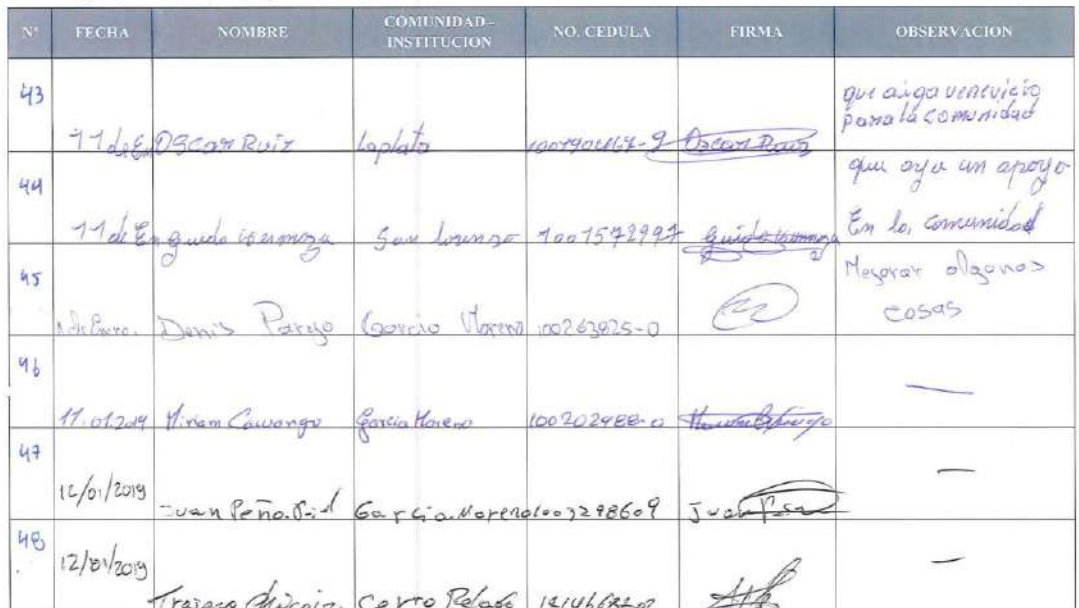 Nº FECHA NOMBRE COMUNIDAD - INSTITUCION NO. CEDULA FIRMA OBSERVACION
43 11 de En Oscar Ruiz Laplata Oscar Ruiz
que aiga venevicio
para la comunidad
44 11 de En guido San Lorenzo 1001572997 guido
que aya un apoyo
En la comunidad
45 de Enero. Denis Parejo Garcia Moreno 100263825-0
Mejorar algunas
cosas
46 11.01.2019 Miriam Garcia Moreno 100202988-0 —
47 12/01/2019 Juan Peña Garcia Moreno 1003298609 Juan —
48 12/01/2019 Cerro Pelado —